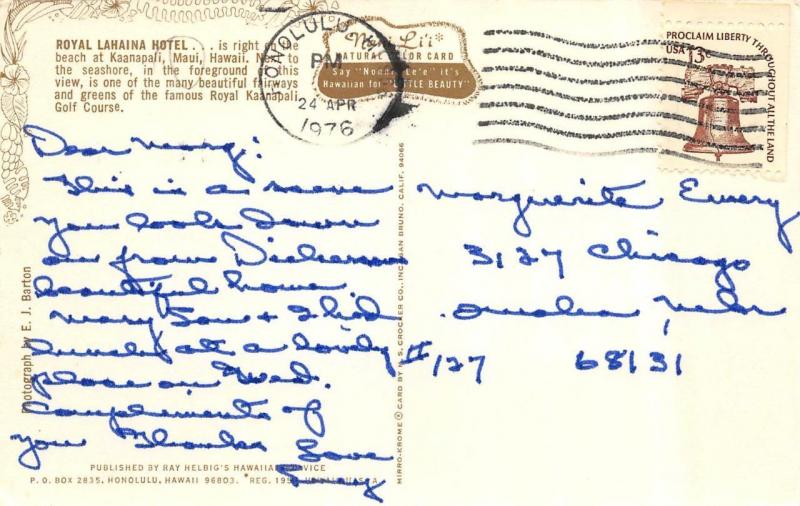 ROYAL LAHAINA HOTEL . . . is right on the
beach at Kaanapali, Maui, Hawaii. Next to
the seashore, in the foreground of this
view, is one of the many beautiful fairways
and greens of the famous Royal Kaanapali
Golf Course.
Nani Li'i*
NATURAL COLOR CARD
Say "Noonie Le'e" it's
Hawaiian for "LITTLE BEAUTY"
HONOLULU, HI
PM
24 APR
1976
PROCLAIM LIBERTY THROUGHOUT ALL THE LAND
USA 13c
Dear Marg:
This is a scene
you look down
on from Dickerson
beautiful home
Mary Lou & I had
lunch at a lovely
place on Wed.
Complements of
you Thanks Love
Marguerite Emery
3127 Chicago
Omaha, Nebr
# 127 68131
Photograph by E. J. Barton
MIRRO-KROME® CARD BY H. S. CROCKER CO., INC., SAN BRUNO, CALIF. 94066
PUBLISHED BY RAY HELBIG'S HAWAIIAN SERVICE
P. O. BOX 2835, HONOLULU, HAWAII 96803. *REG.